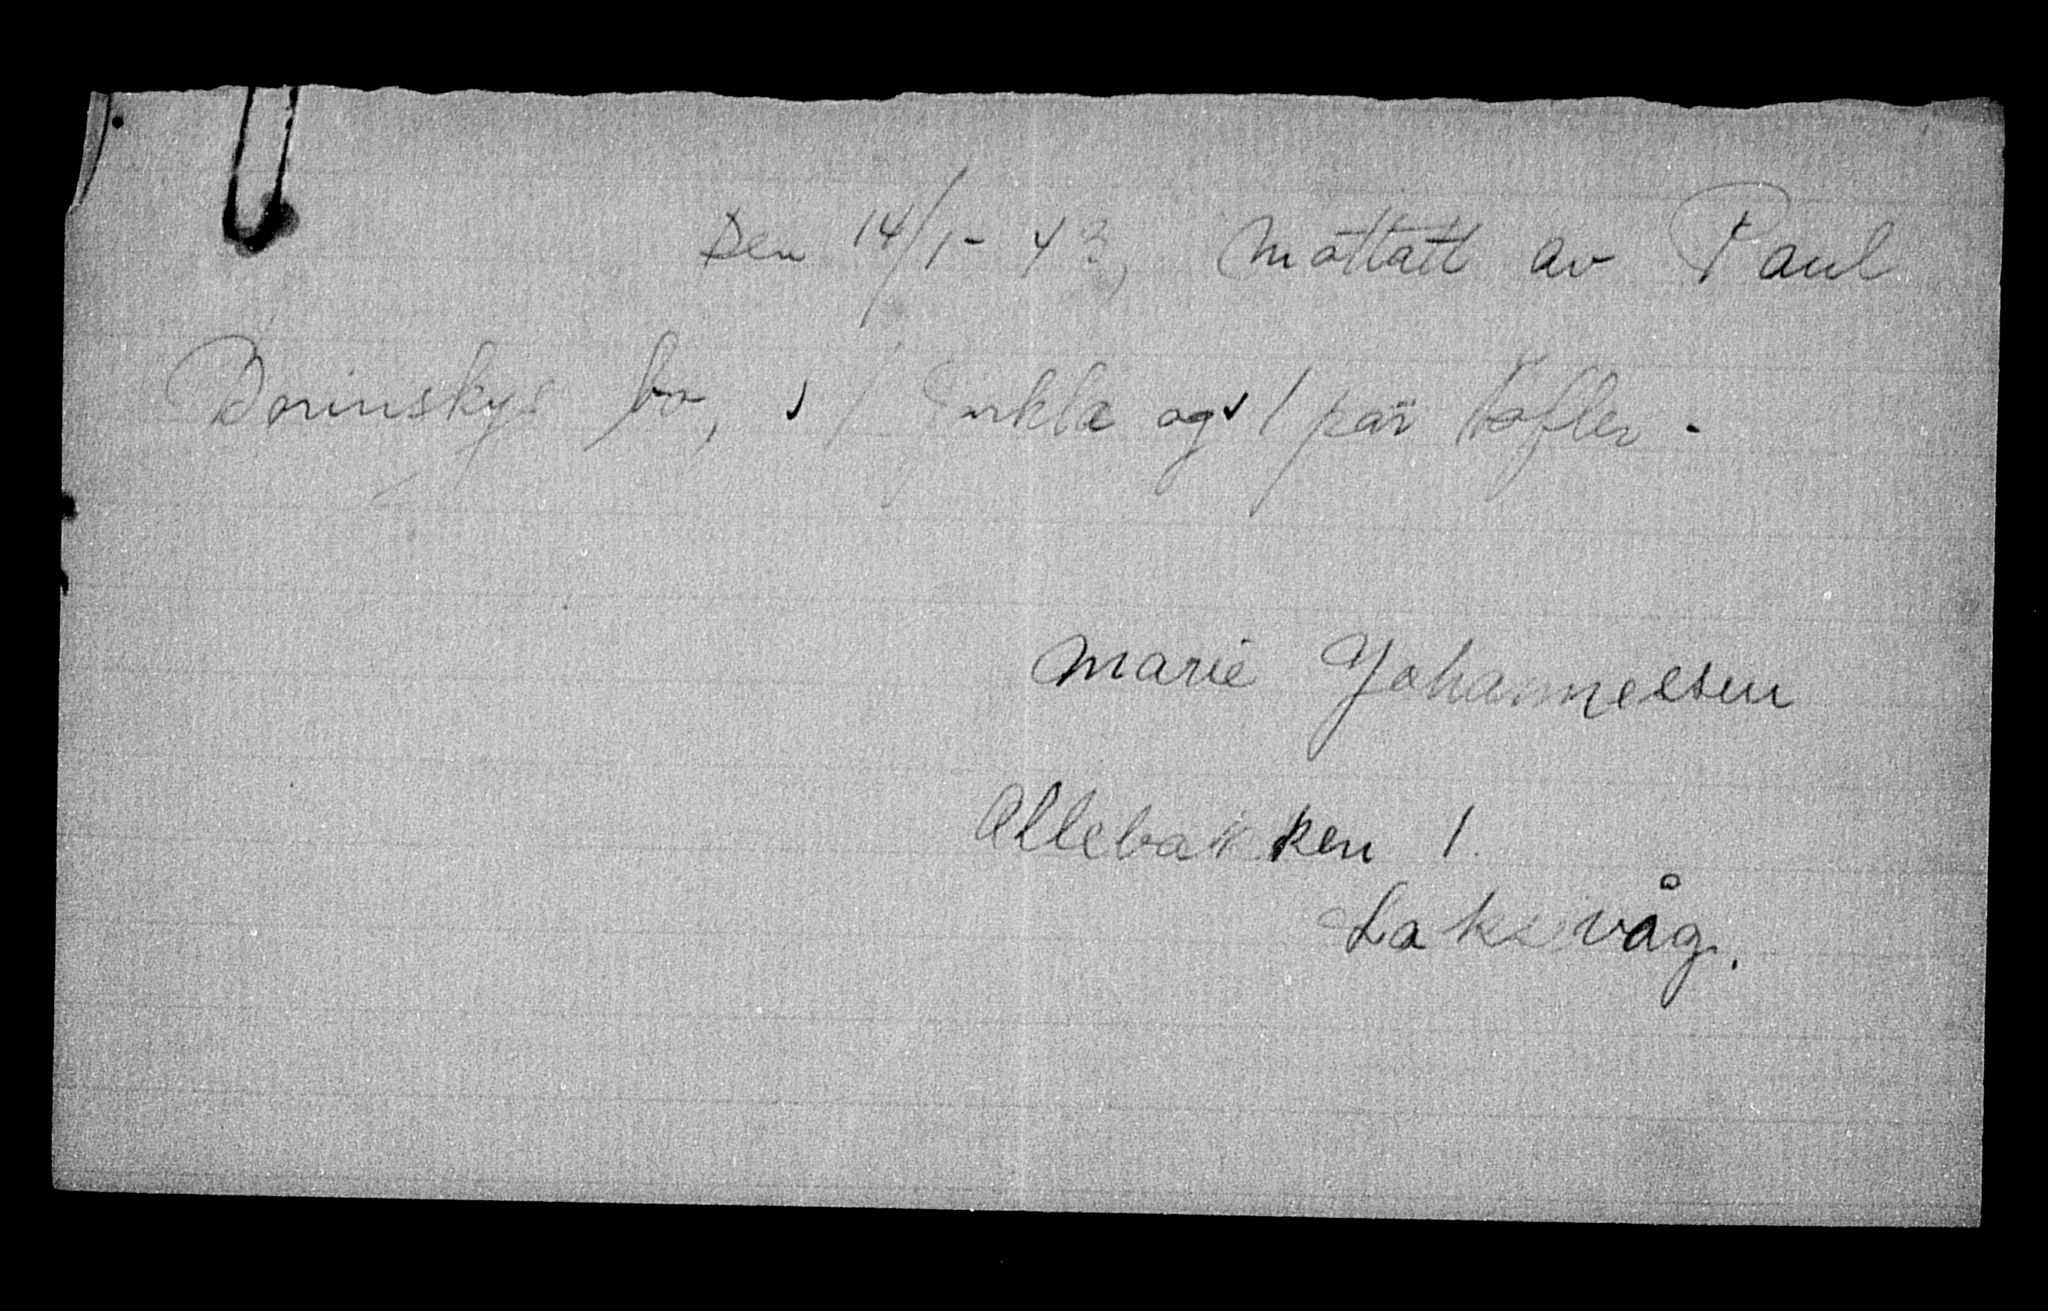 Den 14/1- 43, mottatt av Paul
Dorinskys bo, 1 og 1 par tøfler.
Marie Johannessen
Allebakken 1.
Laksevåg.